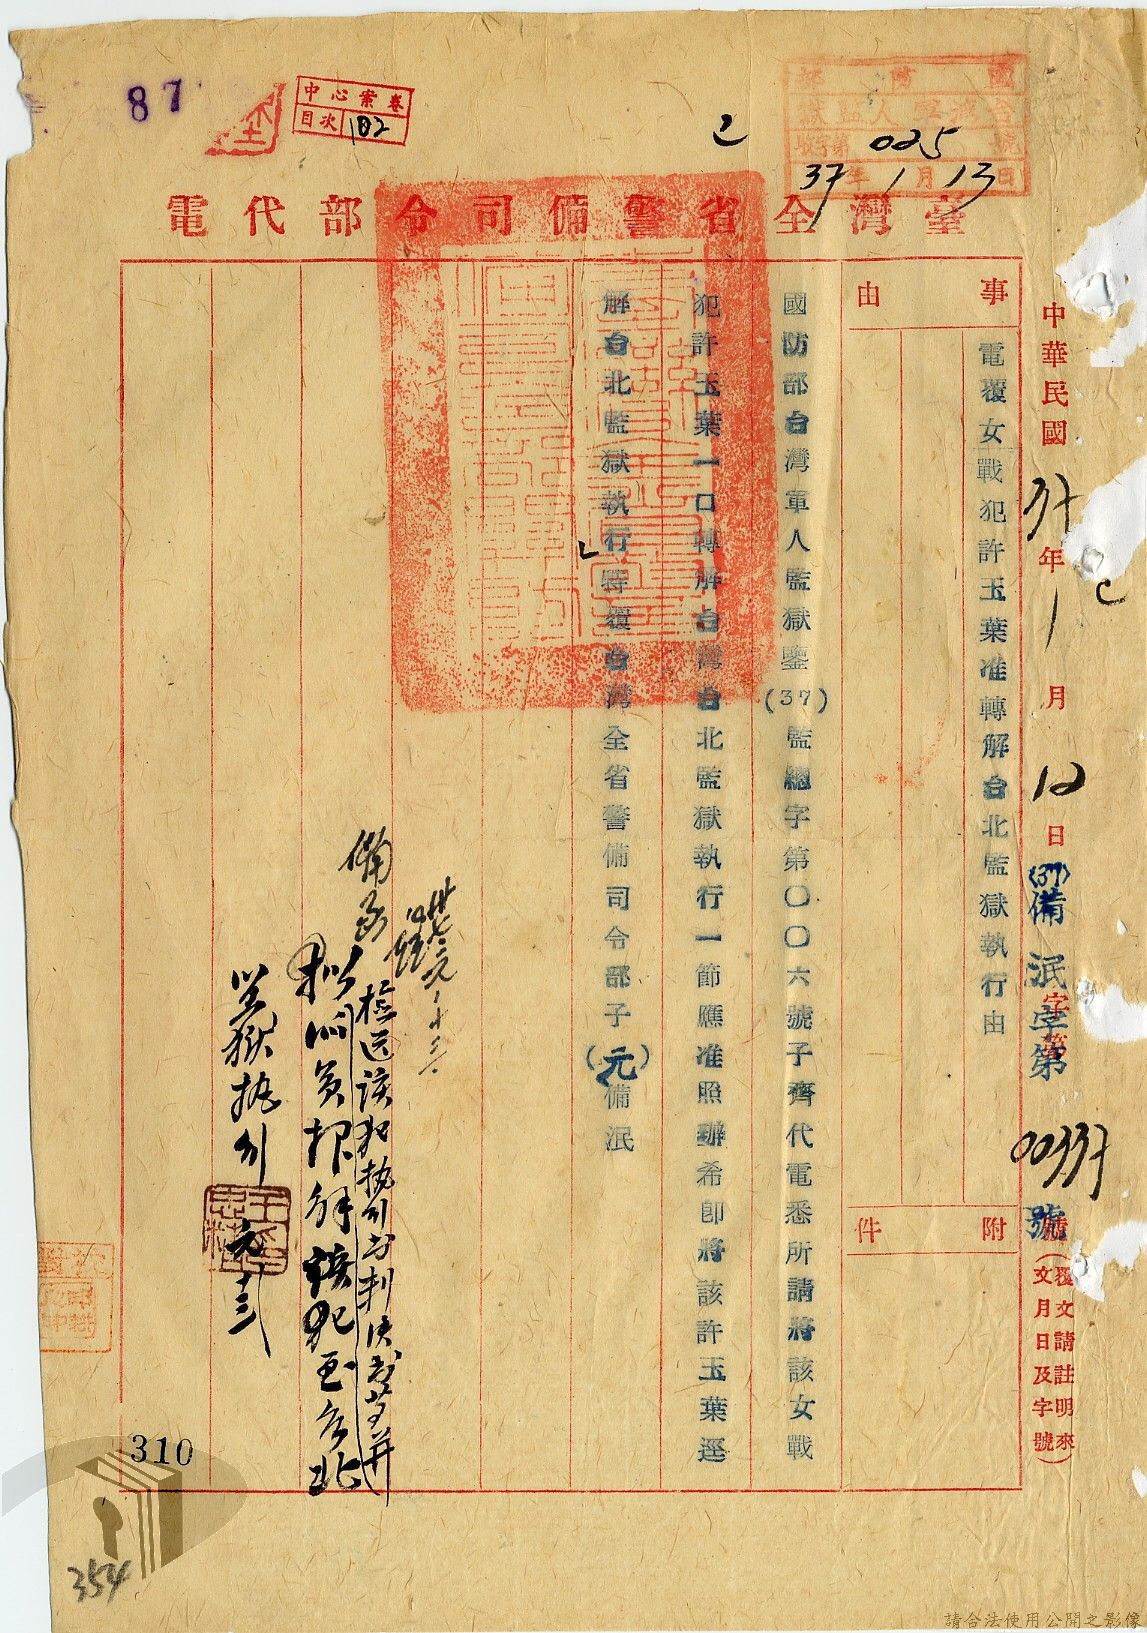 87
中心案卷
目次 102
025
37年1月13日
臺灣全省警備司令部代電
中華民國37年1月12日
(37)備泯字第00337號
(覆文請註明來文月日及字號)
事由
電覆女戰犯許玉葉准轉解台北監獄執行由
附件
國防部台灣軍人監獄鑒(37)監總字第〇〇六號子齊代電悉所請將該女戰
犯許玉葉一口轉解台灣台北監獄執行一節應准照辦希即將該許玉葉逕
解台北監獄執行特覆台灣全省警備司令部子(元)備泯
備函
檢送該犯執行書判決書等并
擬派員押解該犯至台北
監獄執行
元十三
310
354
請合法使用公開之影像